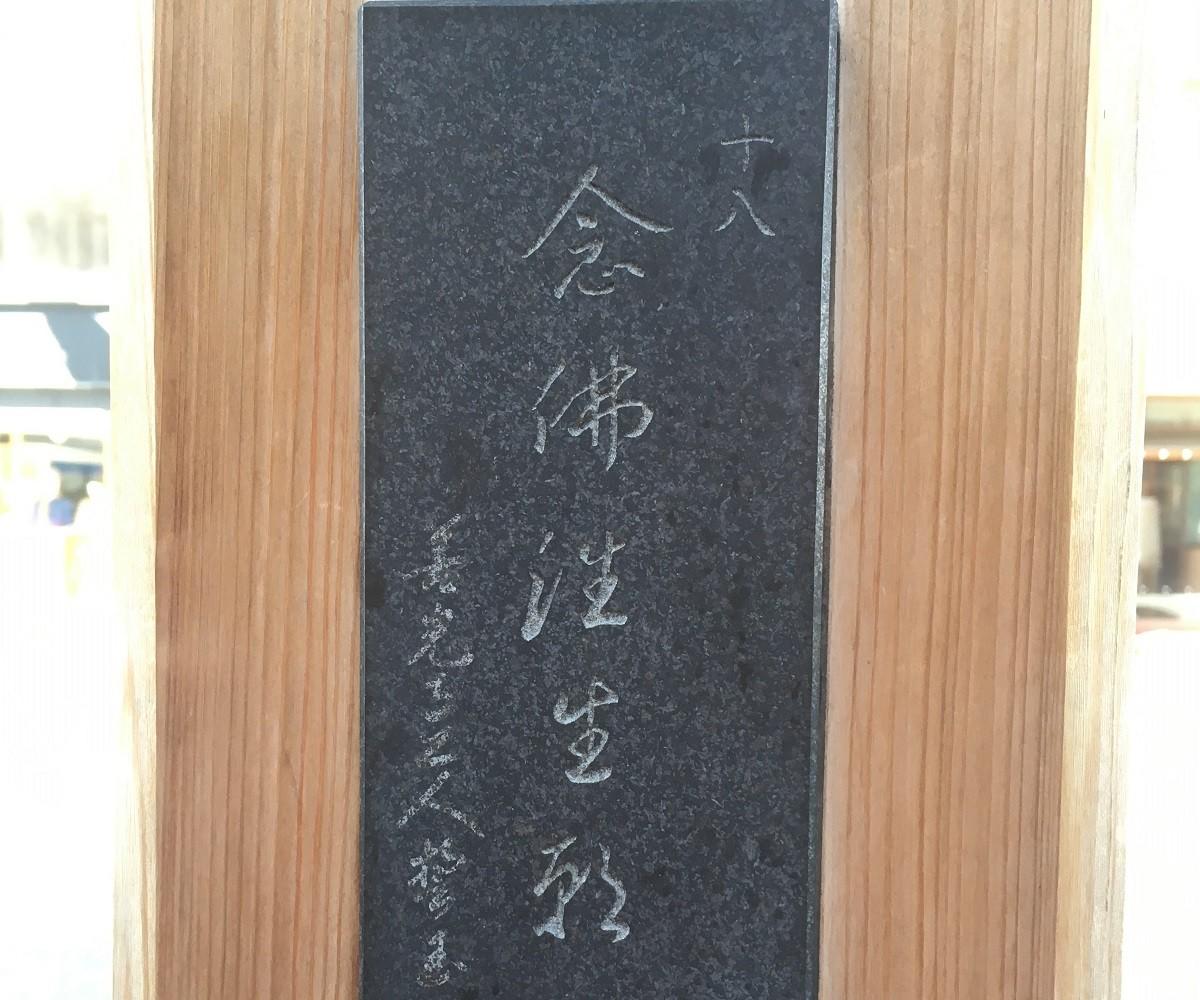 十八
念佛往生願
善光寺上人誓玉